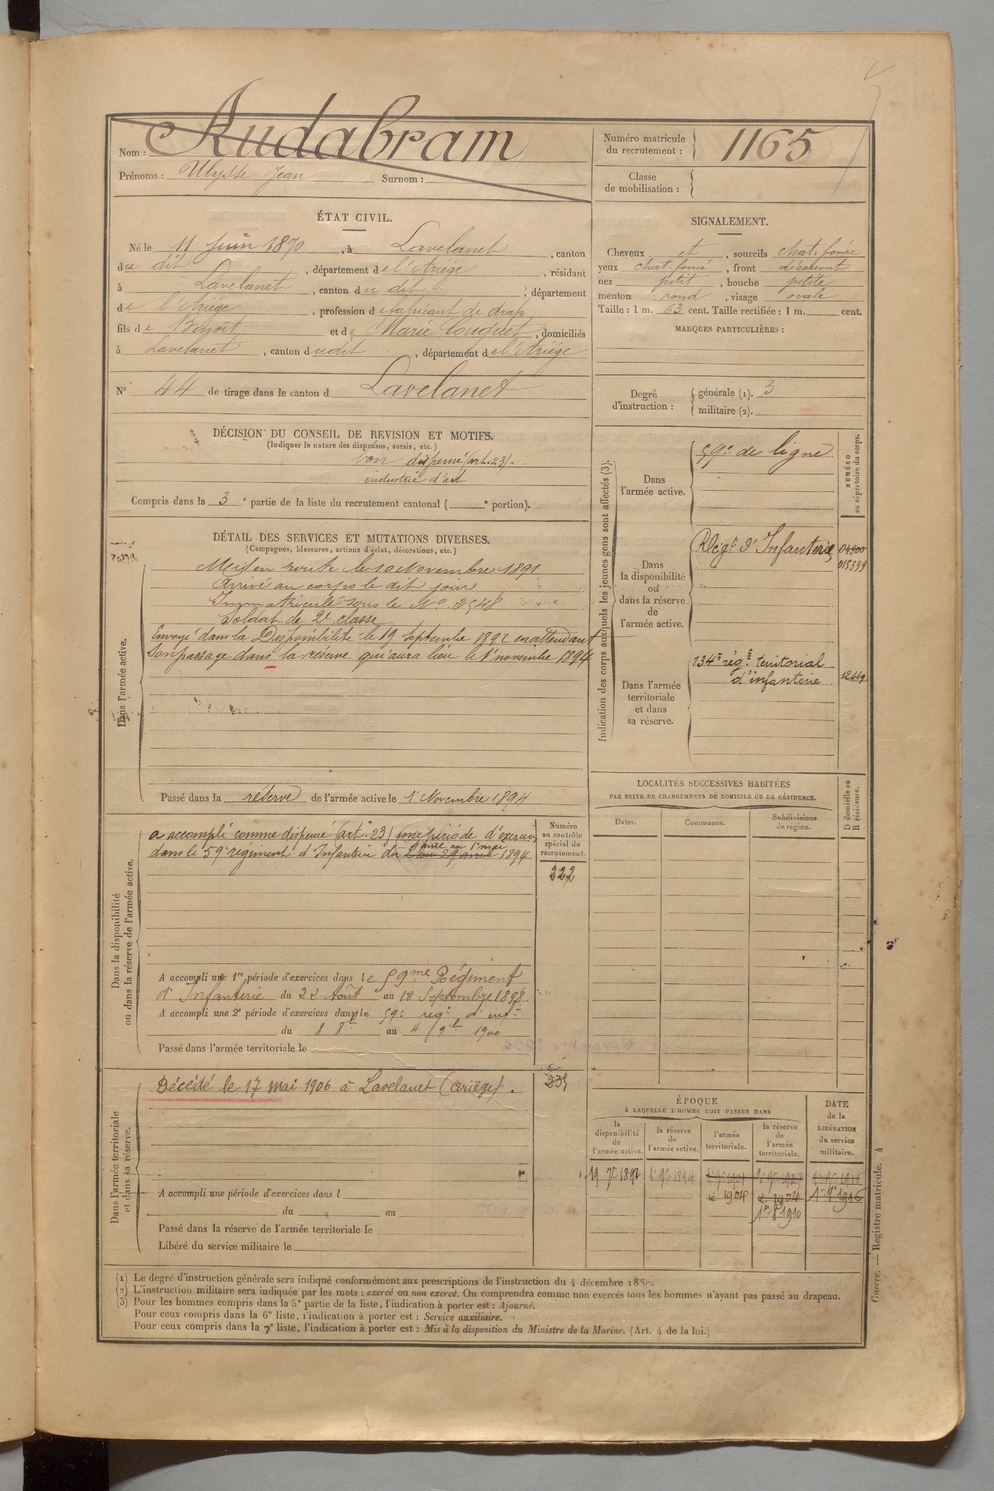 Nom : Audabram
Prénoms : Ulysse Jean Surnom :
Numéro matricule du recrutement : 1165
Classe de mobilisation :
ÉTAT CIVIL.
Né le 11 Juin 1870, à Lavelanet, canton
du dit, département de l'Ariège, résidant
à Lavelanet, canton du dit, département
de l'Ariège, profession de fabricant de drap
fils de Benoit et de Marie Couquet, domiciliés
à Lavelanet, canton dudit, département de l'Ariège
N° 44 de tirage dans le canton d Lavelanet
SIGNALEMENT.
Cheveux et, sourcils chat. foncé
yeux chat. foncé, front découvert
nez petit, bouche petite
menton rond, visage ovale
Taille : 1 m. 63 cent. Taille rectifiée : 1 m. cent.
MARQUES PARTICULIÈRES :
Degré d'instruction : générale (1). 3
militaire (2).
DÉCISION DU CONSEIL DE REVISION ET MOTIFS.
(Indiquer la nature des dispenses, sursis, etc.)
bon dispensé (art. 23).
industrie d'art
Compris dans la 3e partie de la liste du recrutement cantonal ( e portion).
DÉTAIL DES SERVICES ET MUTATIONS DIVERSES.
(Campagnes, blessures, actions d'éclat, décorations, etc.)
Dans l'armée active.
Mis en route le 10 Novembre 1891
arrivé au corps le dit jour
Immatriculé sous le N° 3548
Soldat de 2e classe
Envoyé dans la Disponibilité le 19 Septembre 1892 en attendant
son passage dans la réserve qui aura lieu le 1er novembre 1894
Passé dans la réserve de l'armée active le 1er Novembre 1894
Indication des corps auxquels les jeunes gens sont affectés (3).
NUMÉRO au répertoire du corps.
Dans l'armée active.
59e de ligne
Dans la disponibilité ou dans la réserve de l'armée active.
Régt d'Infanterie
04300
015339
Dans l'armée territoriale et dans sa réserve.
134e rég. territorial
d'infanterie
12669
LOCALITÉS SUCCESSIVES HABITÉES
PAR SUITE DE CHANGEMENTS DE DOMICILE OU DE RÉSIDENCE.
Dates. Communes. Subdivisions de région.
D domicile ou R résidence.
Dans la disponibilité ou dans la réserve de l'armée active.
Numéro au contrôle spécial du recrutement.
222
a accompli comme dispensé (art. 23) une période d'exercices
dans le 59e régiment d'Infanterie du 2 au 29 avril 1894
A accompli une 1re période d'exercices dans le 59me Régiment
d'Infanterie du 22 Août au 18 Septembre 1898
A accompli une 2e période d'exercices dans le 59e rég. d'inf.
du 8 8bre au 4 9bre 1900
Passé dans l'armée territoriale le
Dans l'armée territoriale et dans sa réserve.
Décédé le 17 Mai 1906 à Lavelanet (Ariège).
A accompli une période d'exercices dans l
du au
Passé dans la réserve de l'armée territoriale le
Libéré du service militaire le
ÉPOQUE
À LAQUELLE L'HOMME DOIT PASSER DANS
la disponibilité de l'armée active.
la réserve de l'armée active.
l'armée territoriale.
la réserve de l'armée territoriale.
DATE de la LIBÉRATION du service militaire.
19 7bre 1892
1er 9bre 1894
1904
1904
1910
1916
(1) Le degré d'instruction générale sera indiqué conformément aux prescriptions de l'instruction du 4 décembre 1889.
(2) L'instruction militaire sera indiquée par les mots : exercé ou non exercé. On comprendra comme non exercés tous les hommes n'ayant pas passé au drapeau.
(3) Pour les hommes compris dans la 5e partie de la liste, l'indication à porter est : Ajourné.
Pour ceux compris dans la 6e liste, l'indication à porter est : Service auxiliaire.
Pour ceux compris dans la 7e liste, l'indication à porter est : Mis à la disposition du Ministre de la Marine. (Art. 4 de la loi.)
Guerre. — Registre matricule. 4